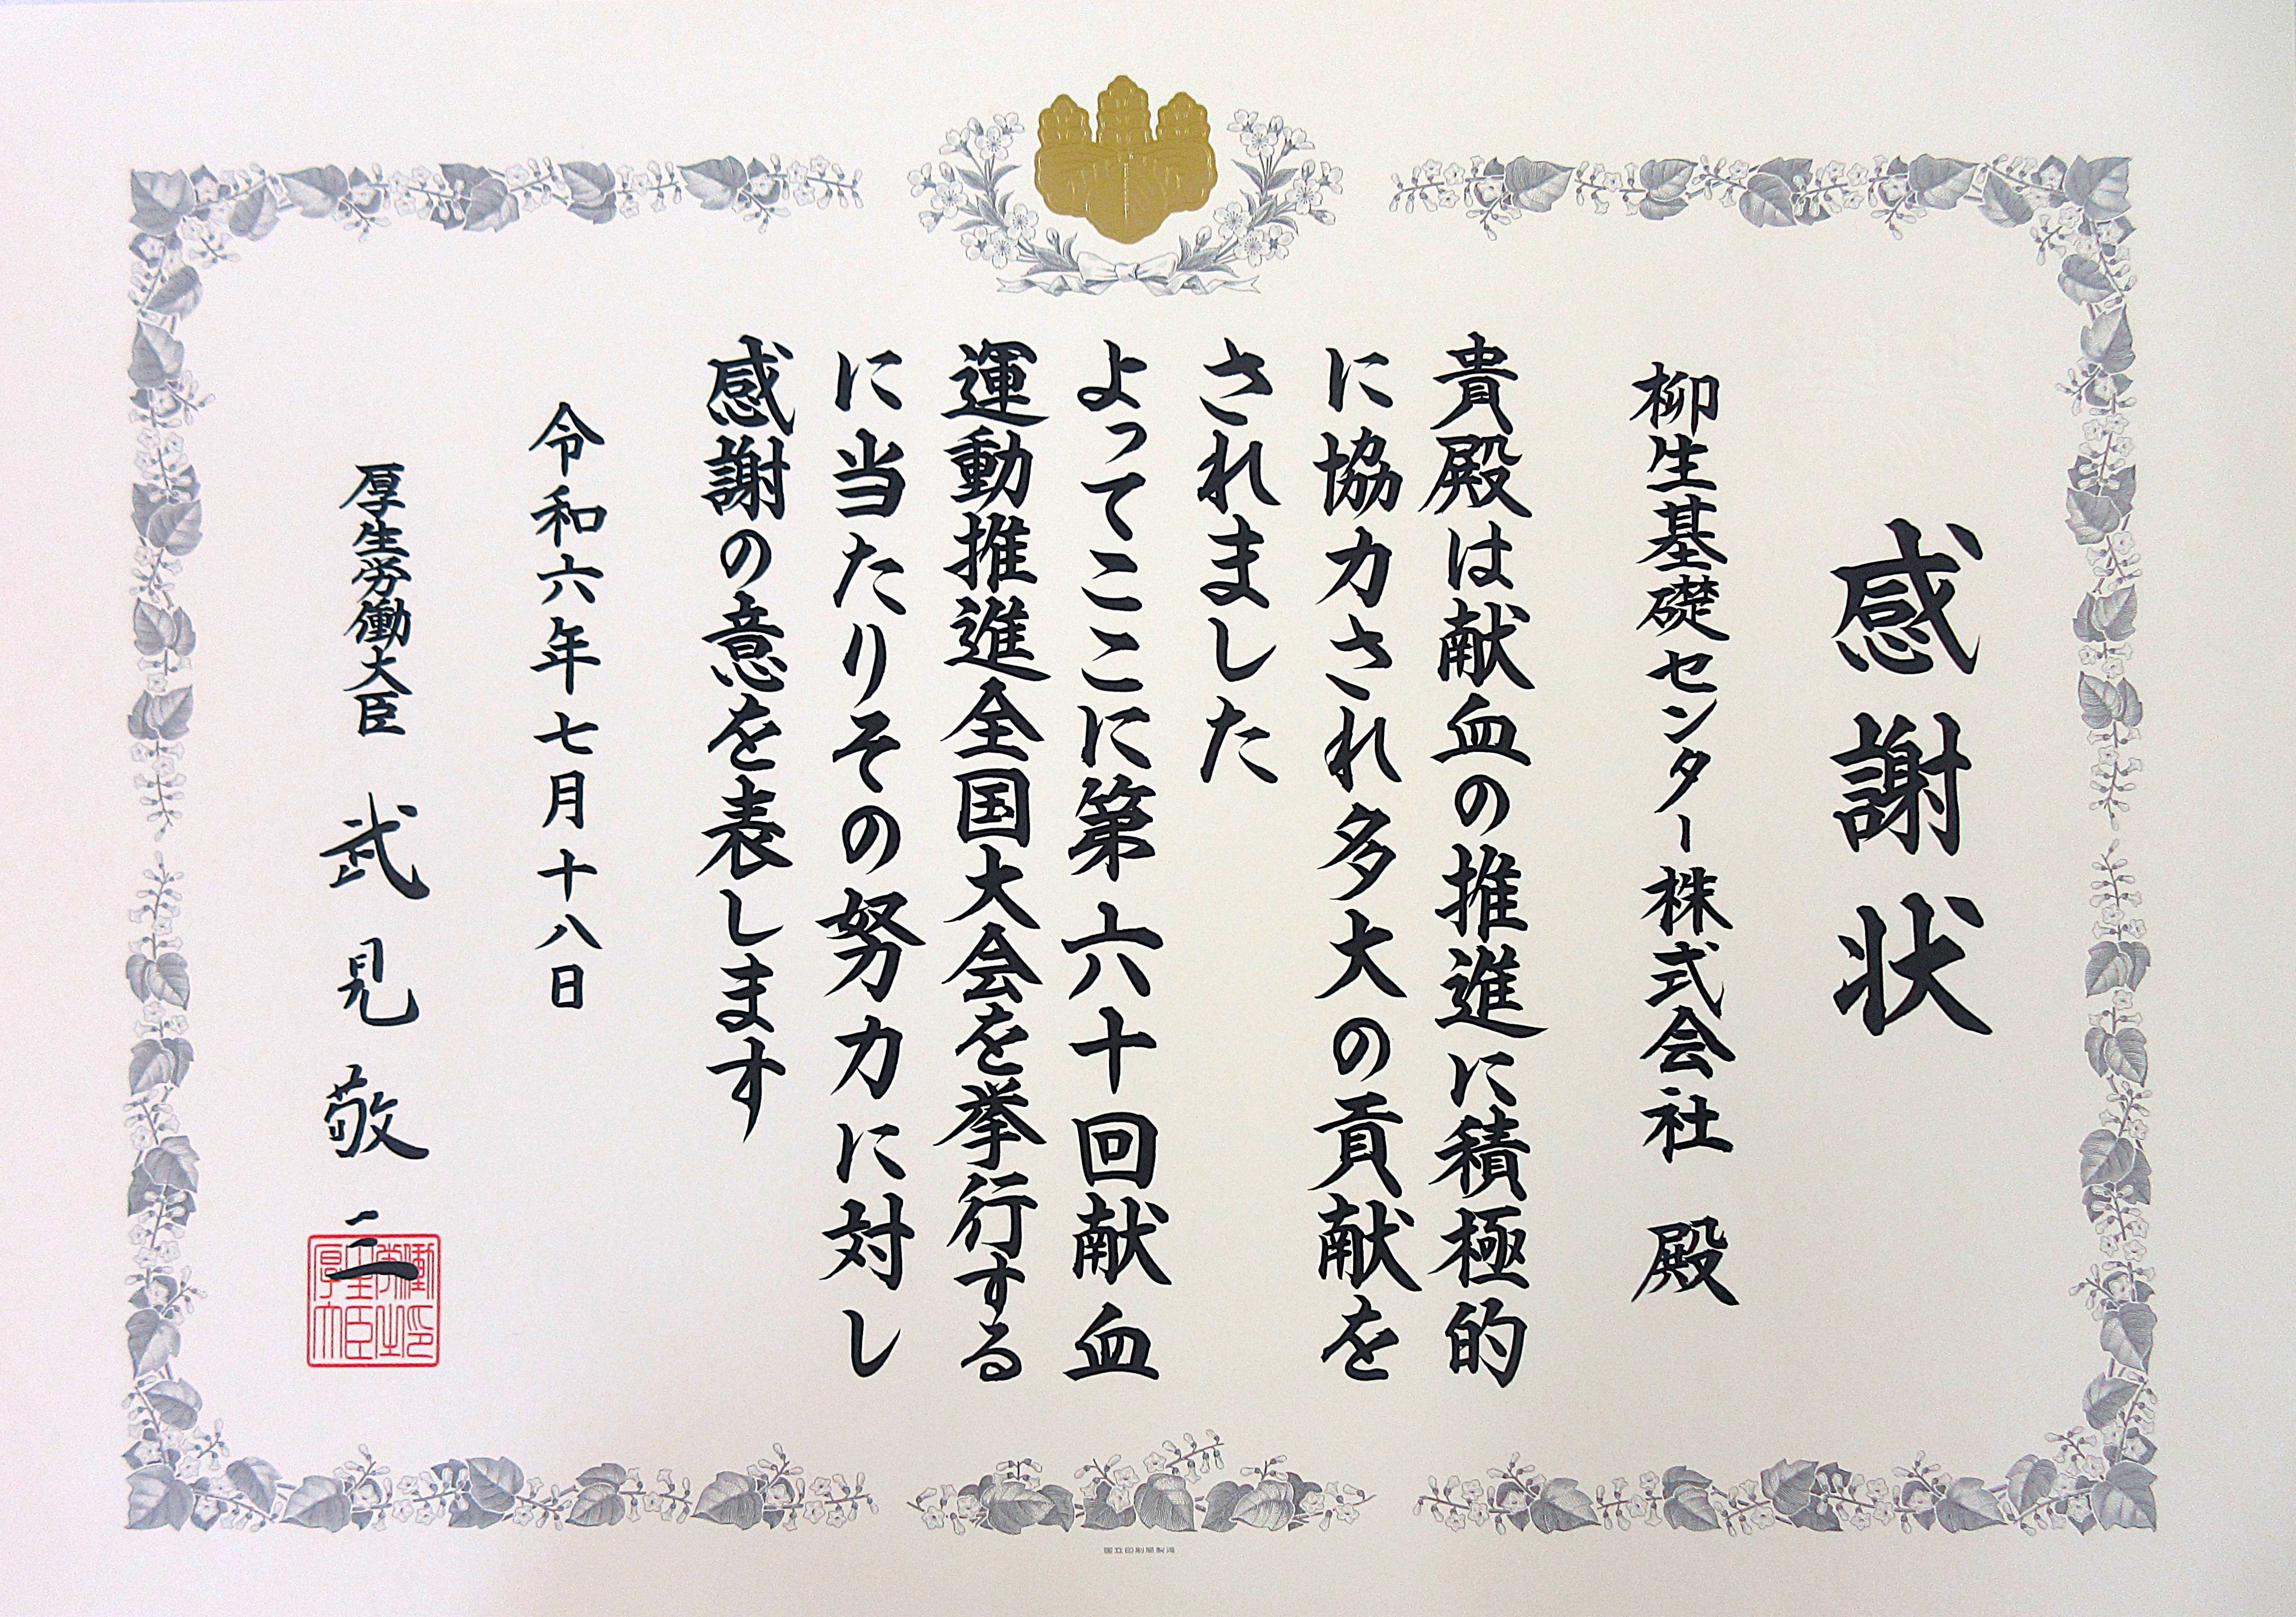 感謝状
柳生基礎センター株式会社 殿
貴殿は献血の推進に積極的
に協力され多大の貢献を
されました
よってここに第六十回献血
運動推進全国大会を挙行する
に当たりその努力に対し
感謝の意を表します
令和六年七月十八日
厚生労働大臣 武見敬三
国立印刷局製造